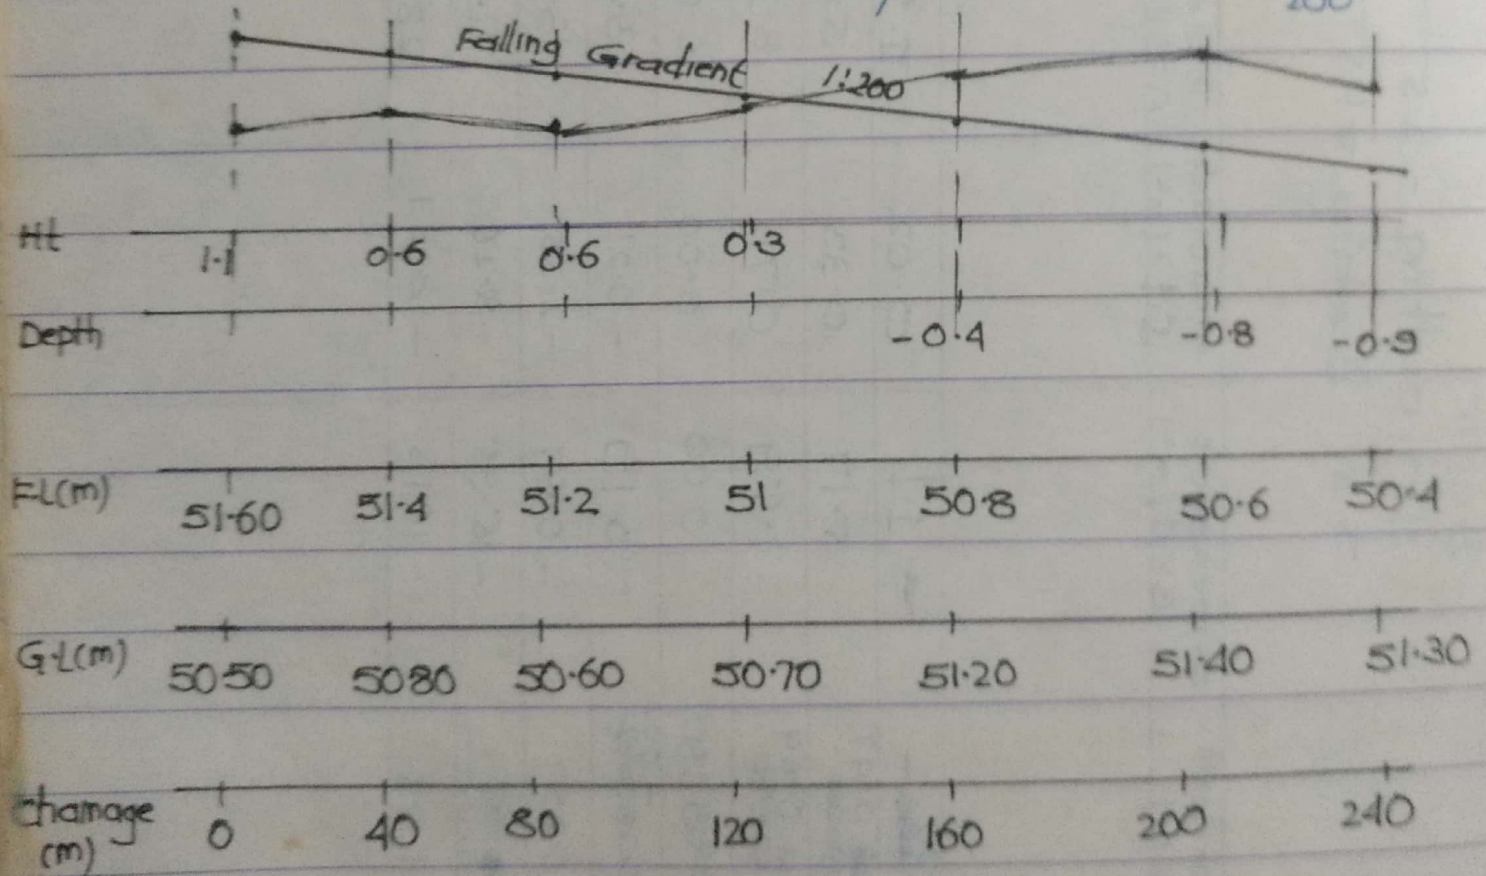 200
Falling Gradient 1:200
Ht 1.1 0.6 0.6 0.3
Depth -0.4 -0.8 -0.9
FL(m) 51.60 51.4 51.2 51 50.8 50.6 50.4
G.L(m) 50.50 50.80 50.60 50.70 51.20 51.40 51.30
Chainage 0 40 80 120 160 200 240
(m)